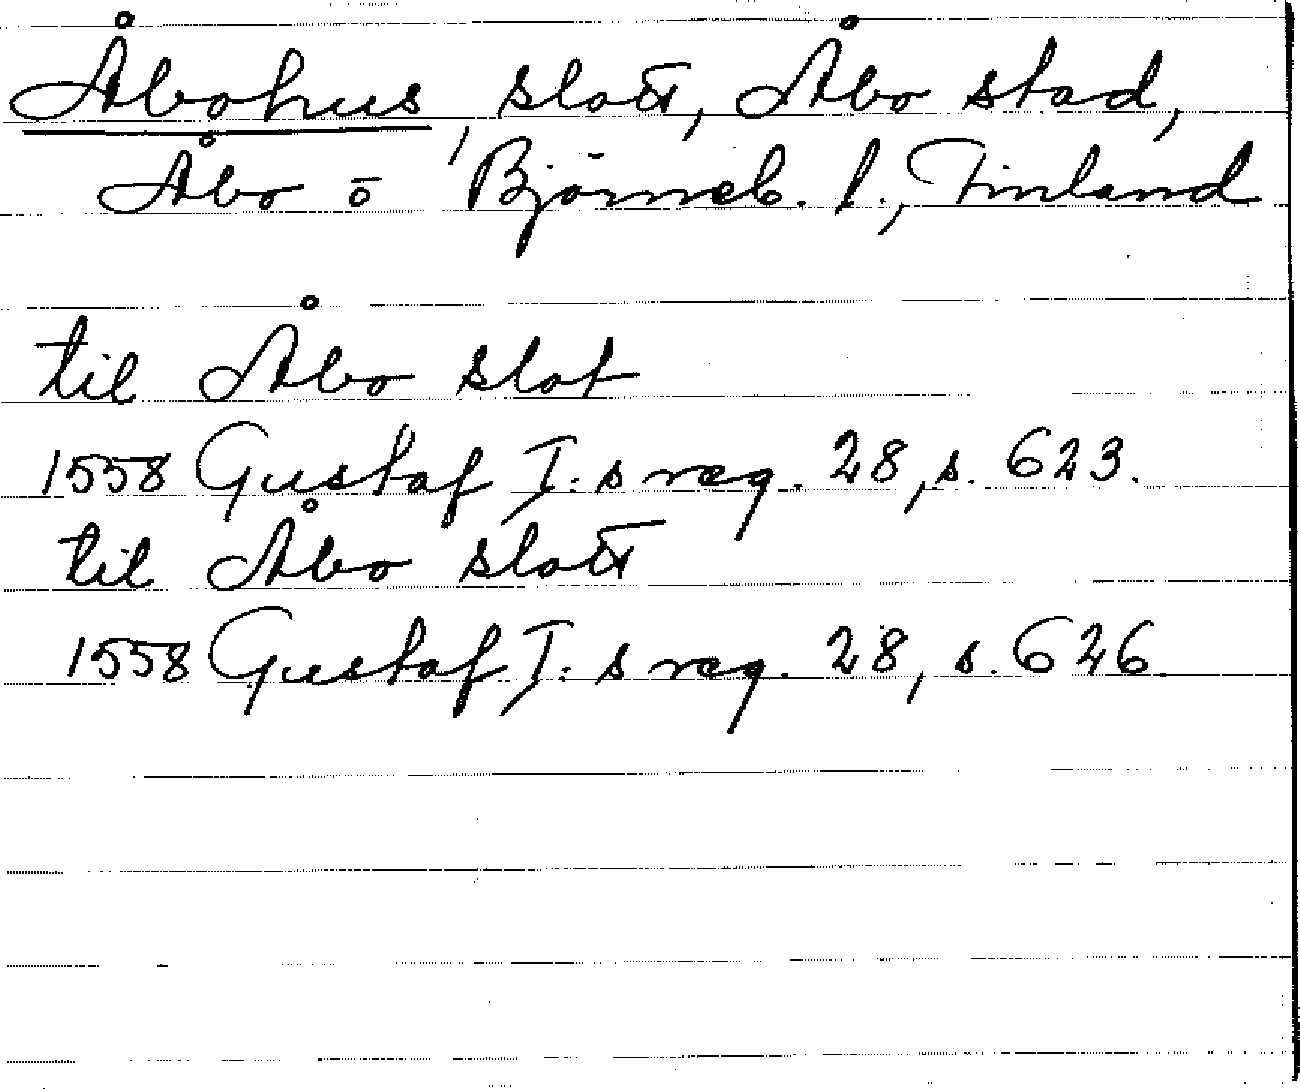 Åbohus, slott, Åbo stad,
Åbo o Björneb. l., Finland
til Åbo slot
1558 Gustaf I:s reg. 28, s. 623.
til Åbo slott
1558 Gustaf I:s reg. 28, s. 626.